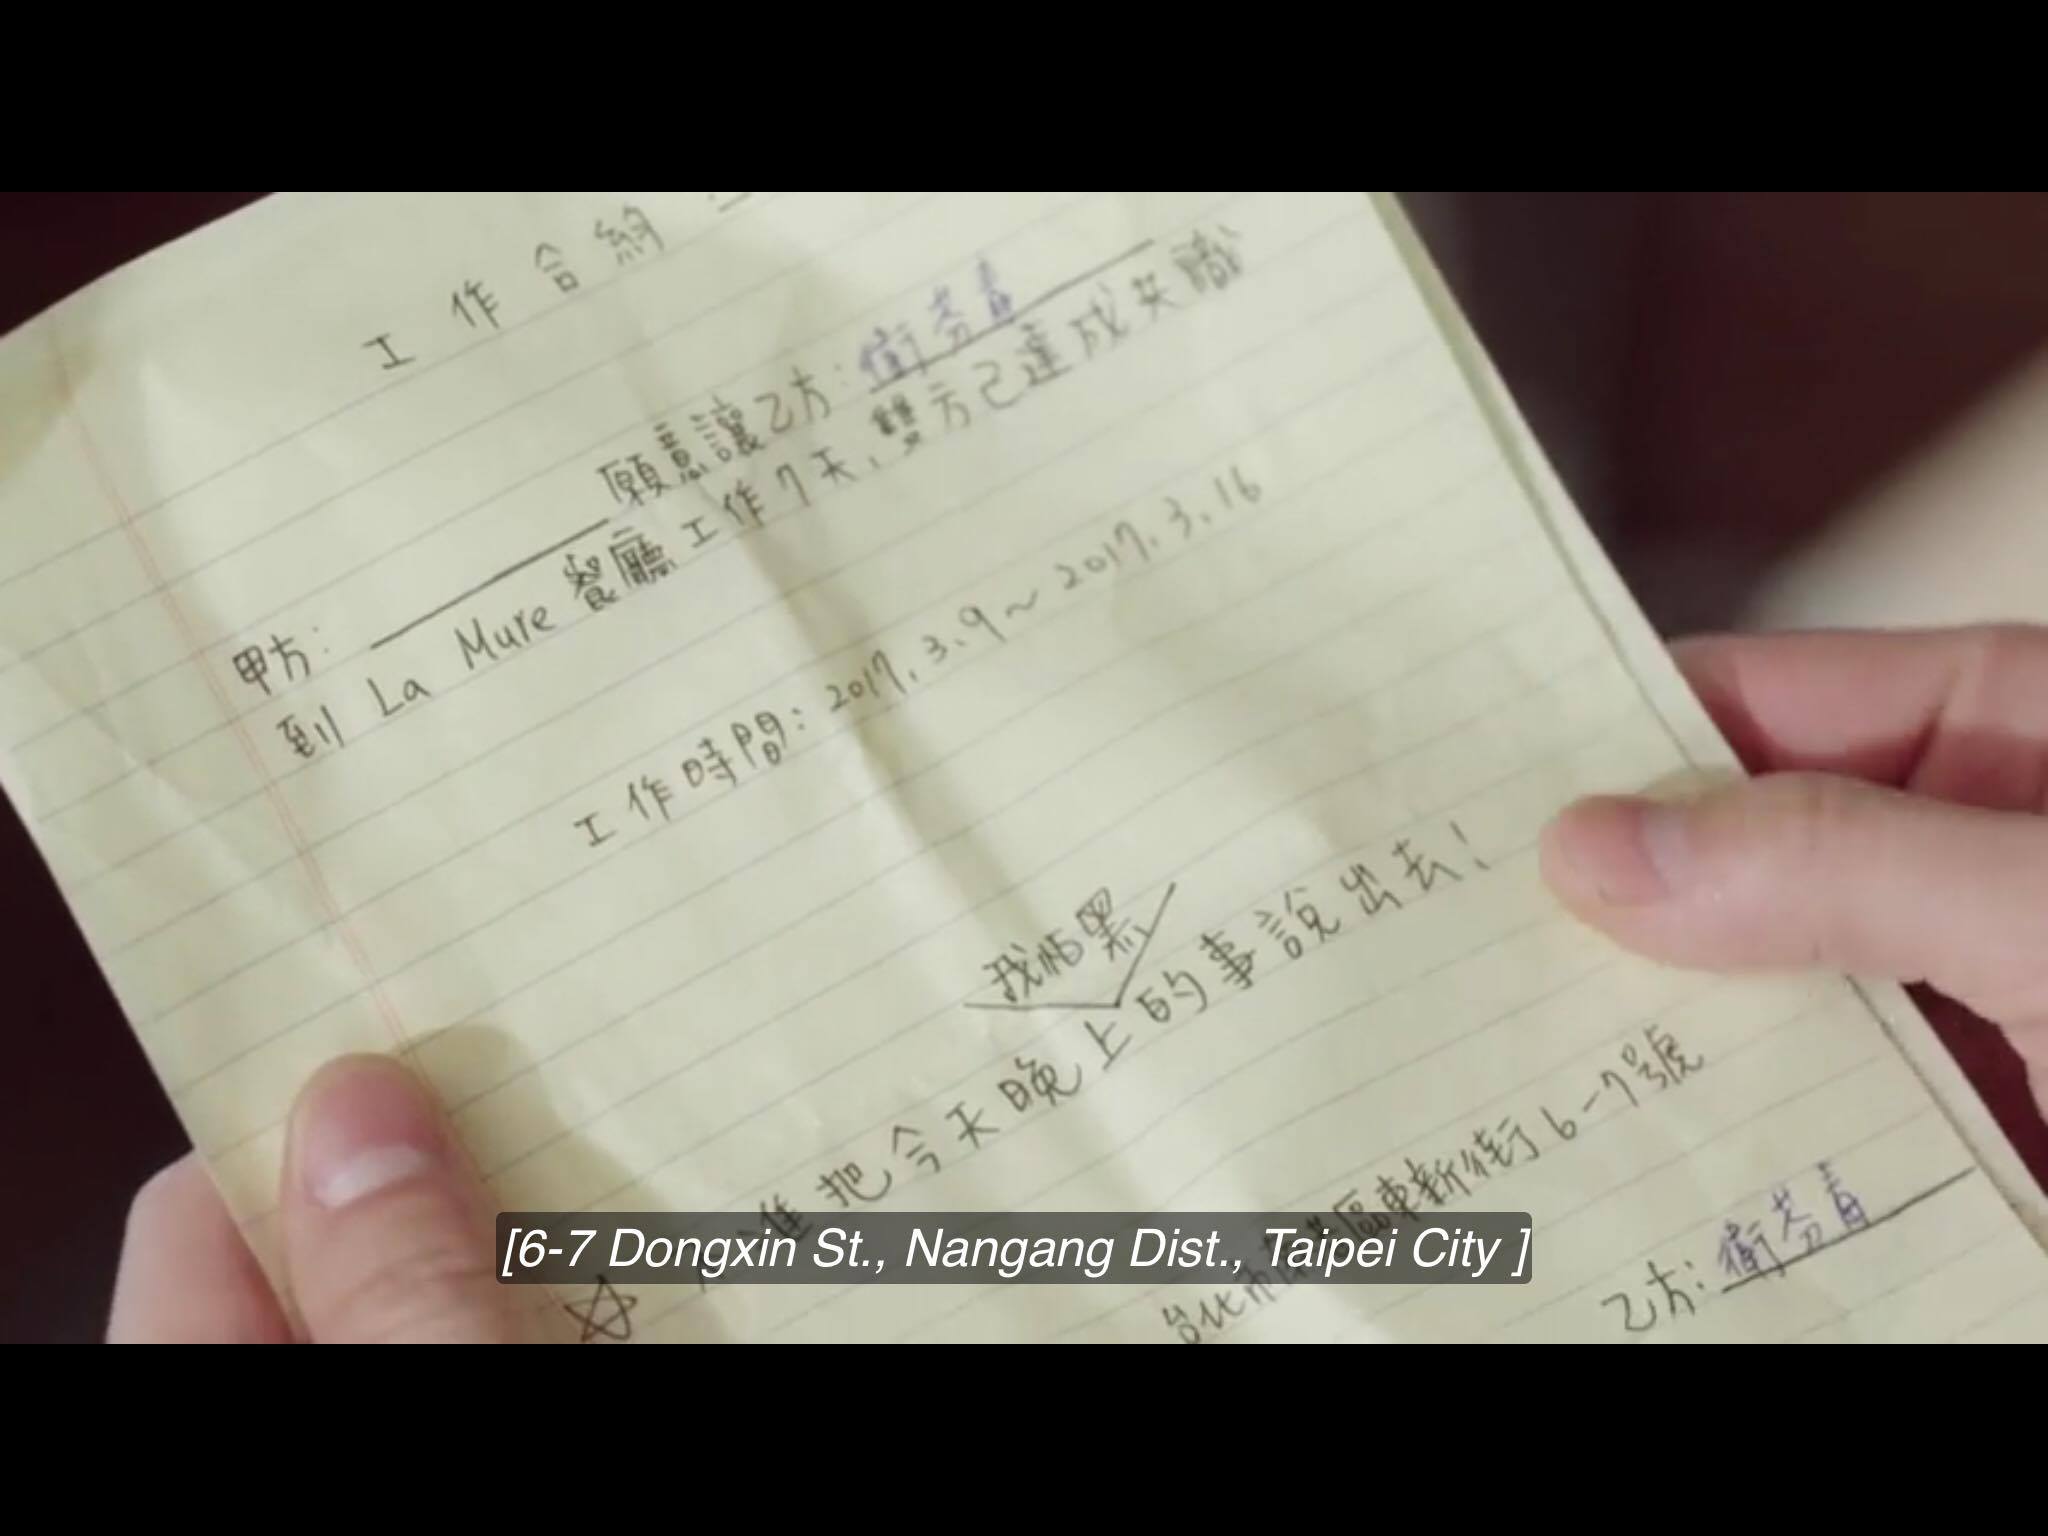 工作合約
甲方：願意讓乙方：衛芬青
到 La Mure 餐廳工作7天，雙方已達成共識
工作時間：2017.3.9～2017.3.16
我怕黑
准把今天晚上的事說出去！
台北市南港區東新街6-7號
乙方：衛芬青
[6-7 Dongxin St., Nangang Dist., Taipei City ]